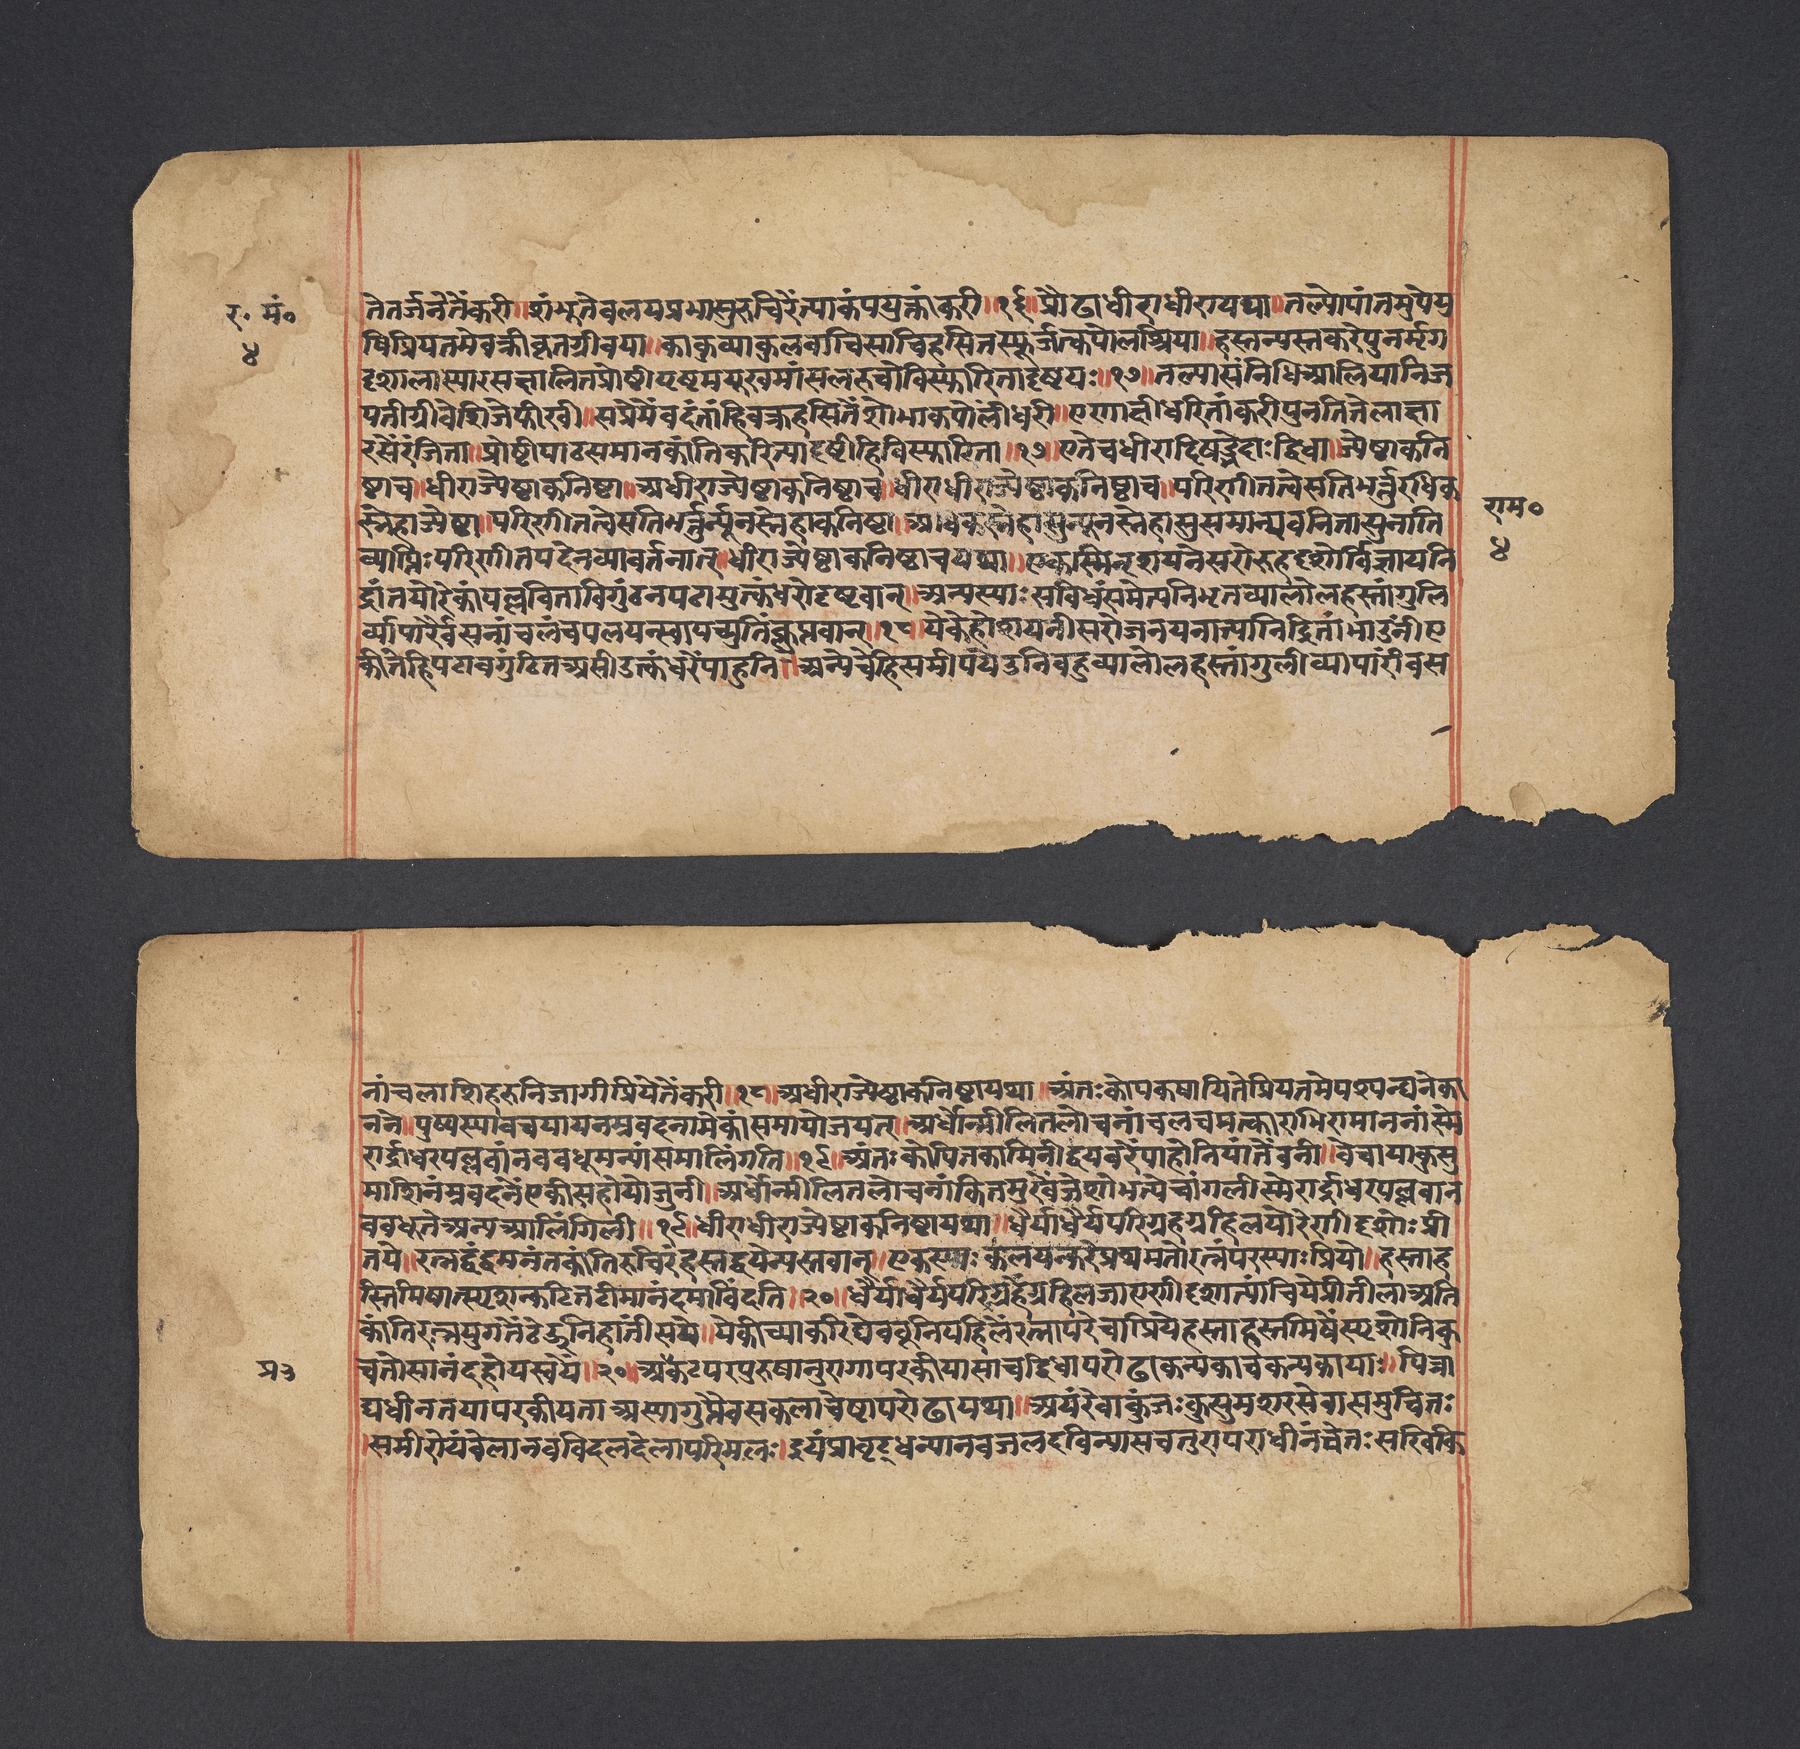 र॰ मं॰
४
तेतर्जनेतेंकरी॥शंभूतेवलयप्रभासुरुचिरेंत्याकंपयुक्तांकरी॥१६॥प्रौढाधीराधीरायथा॥तल्पोपांतमुपेयु
षिप्रियतमेवक्रीकृतग्रीवया॥काकुव्याकुलवाचिसाचिहसितस्फूर्जत्कपोलश्रिया॥हस्तन्यस्तकरेपुनर्मृग
दृशालाक्षारसक्षालितप्रोष्ठीपृष्ठमयूखमांसलरुचोविस्फारितादृष्टयः॥१७॥तल्पासंनिधिआलियानिज
पतीग्रीवेशिजेफीरवी॥सप्रेमेंवदंतांहिवक्रहसितेंशोभाकपोलींधरी॥एणाक्षीधरितांकरीपुनतितेलाक्षा
रसेंरंजिता॥प्रोष्ठीपाठसमानकांतिकरित्यादृष्टीहिविस्फारिता॥१७॥एतेचधीरादिषड्भेदाःद्विधा॥ज्येष्ठाकनि
ष्ठाच॥धीराज्येष्ठाकनिष्ठा॥अधीराज्येष्ठाकनिष्ठाच॥धीराधीराज्येष्ठाकनिष्ठाच॥परिणीतत्वेसतिभर्त्तुरधिक
स्नेहाज्येष्ठा॥परिणीतत्वेसतिभर्त्तुर्न्यूनस्नेहाकनिष्ठा॥अधिकस्नेहासुन्यूनस्नेहासुसमान्यवनितासुनाति
व्याप्तिःपरिणीतपदेनव्यावर्तनात्॥धीराज्येष्ठाकनिष्ठाचयथा॥एकस्मिन्शयनेसरोरुहदृशोर्विज्ञायनि
द्रांतयोरेकांपल्लवितावगुंठनपटामुत्कंधरोदृष्टवान्॥अन्यस्याःसविधंसमेत्यनिभृतव्यालोलहस्तांगुलि
र्व्यापारैर्वसनांचलंचपलयन्स्वापच्युतिंक्लृप्तवान्॥१८॥येकेहोशयनीसरोजनयनाज्यानिद्रितांभाउंनीए
कीतेहिपटावगुंठितअसीउत्कंधरेंपाहुनि॥अन्येचेहिसमीपयेउनिबहुव्यालोलहस्तांगुलीव्यापारींवस
राम॰
४
नांचलाशिहरुनिजागीप्रियेतेंकरी॥१८॥अधीराज्येष्ठाकनिष्ठायथा॥अंतःकोपकषायितेप्रियतमेपश्यन्घनेका
नने॥पुष्पस्यावचयायनम्रवदनामेकांसमायोजयत्॥अर्धोन्मीलितलोचनांचलचमत्काराभिरामाननांस्मे
रार्द्राधरपल्लवांनववधूमन्यांसमालिंगति॥१९॥अंतःकोपितकामिनीद्वयबरेंपाहोनियांतेंवनी॥वेचायाकुसु
माशिनंम्रवदनेंएकीसहोयोजुनी॥अर्धोन्मीलितलोचनांकितमुखेंजेशोभत्येचांगलीस्मेरार्द्राधरपल्लवान
ववधूतेअन्यआलिंगिली॥१९॥धीराधीराज्येष्ठाकनिष्ठायथा॥धैर्याधैर्यपरिग्रहग्रहिलयोरेणीदृशोःप्री
तये॥रत्नद्वंद्वमनंतकांतिरुचिरंहस्तद्वयेन्यस्तवान्॥एकस्याःकलयन्करेप्रथमतोरत्नंपरस्याःप्रियो॥हस्ताह
स्तिमिषात्स्पृशन्कटितटीमानंदमाविंदति॥२०॥धैर्याधैर्यपरिग्रहेंग्रहिलजाएणीदृशात्यांचियेप्रीतीलाअति
कांतिरत्नयुगतेंटेवुनिहातींसये॥येकीच्याकरिघेववूनिपहिलेंरत्नापरेचाप्रियेहस्ताहस्तमिषेंस्पृशोनिकु
चतोसानंदहोयस्वयें॥२०॥अप्रकटपरपुरुषानुरागापरकीयासाचद्विधापरोढाकन्यकाचकन्यकायाः॥पित्रा
द्यधीनतयापरकीयताअस्यागुप्तैवसकलाचेष्टापरोढायथा॥अयंरेवाकुंजःकुसुमशरसेवासमुचितः
॥समीरोयंवेलानवविदलदेलापरिमलः॥इयंप्रावृट्धन्यानवजलदविन्यासचतुरापराधीनंचेतःसखिकि
प्र३